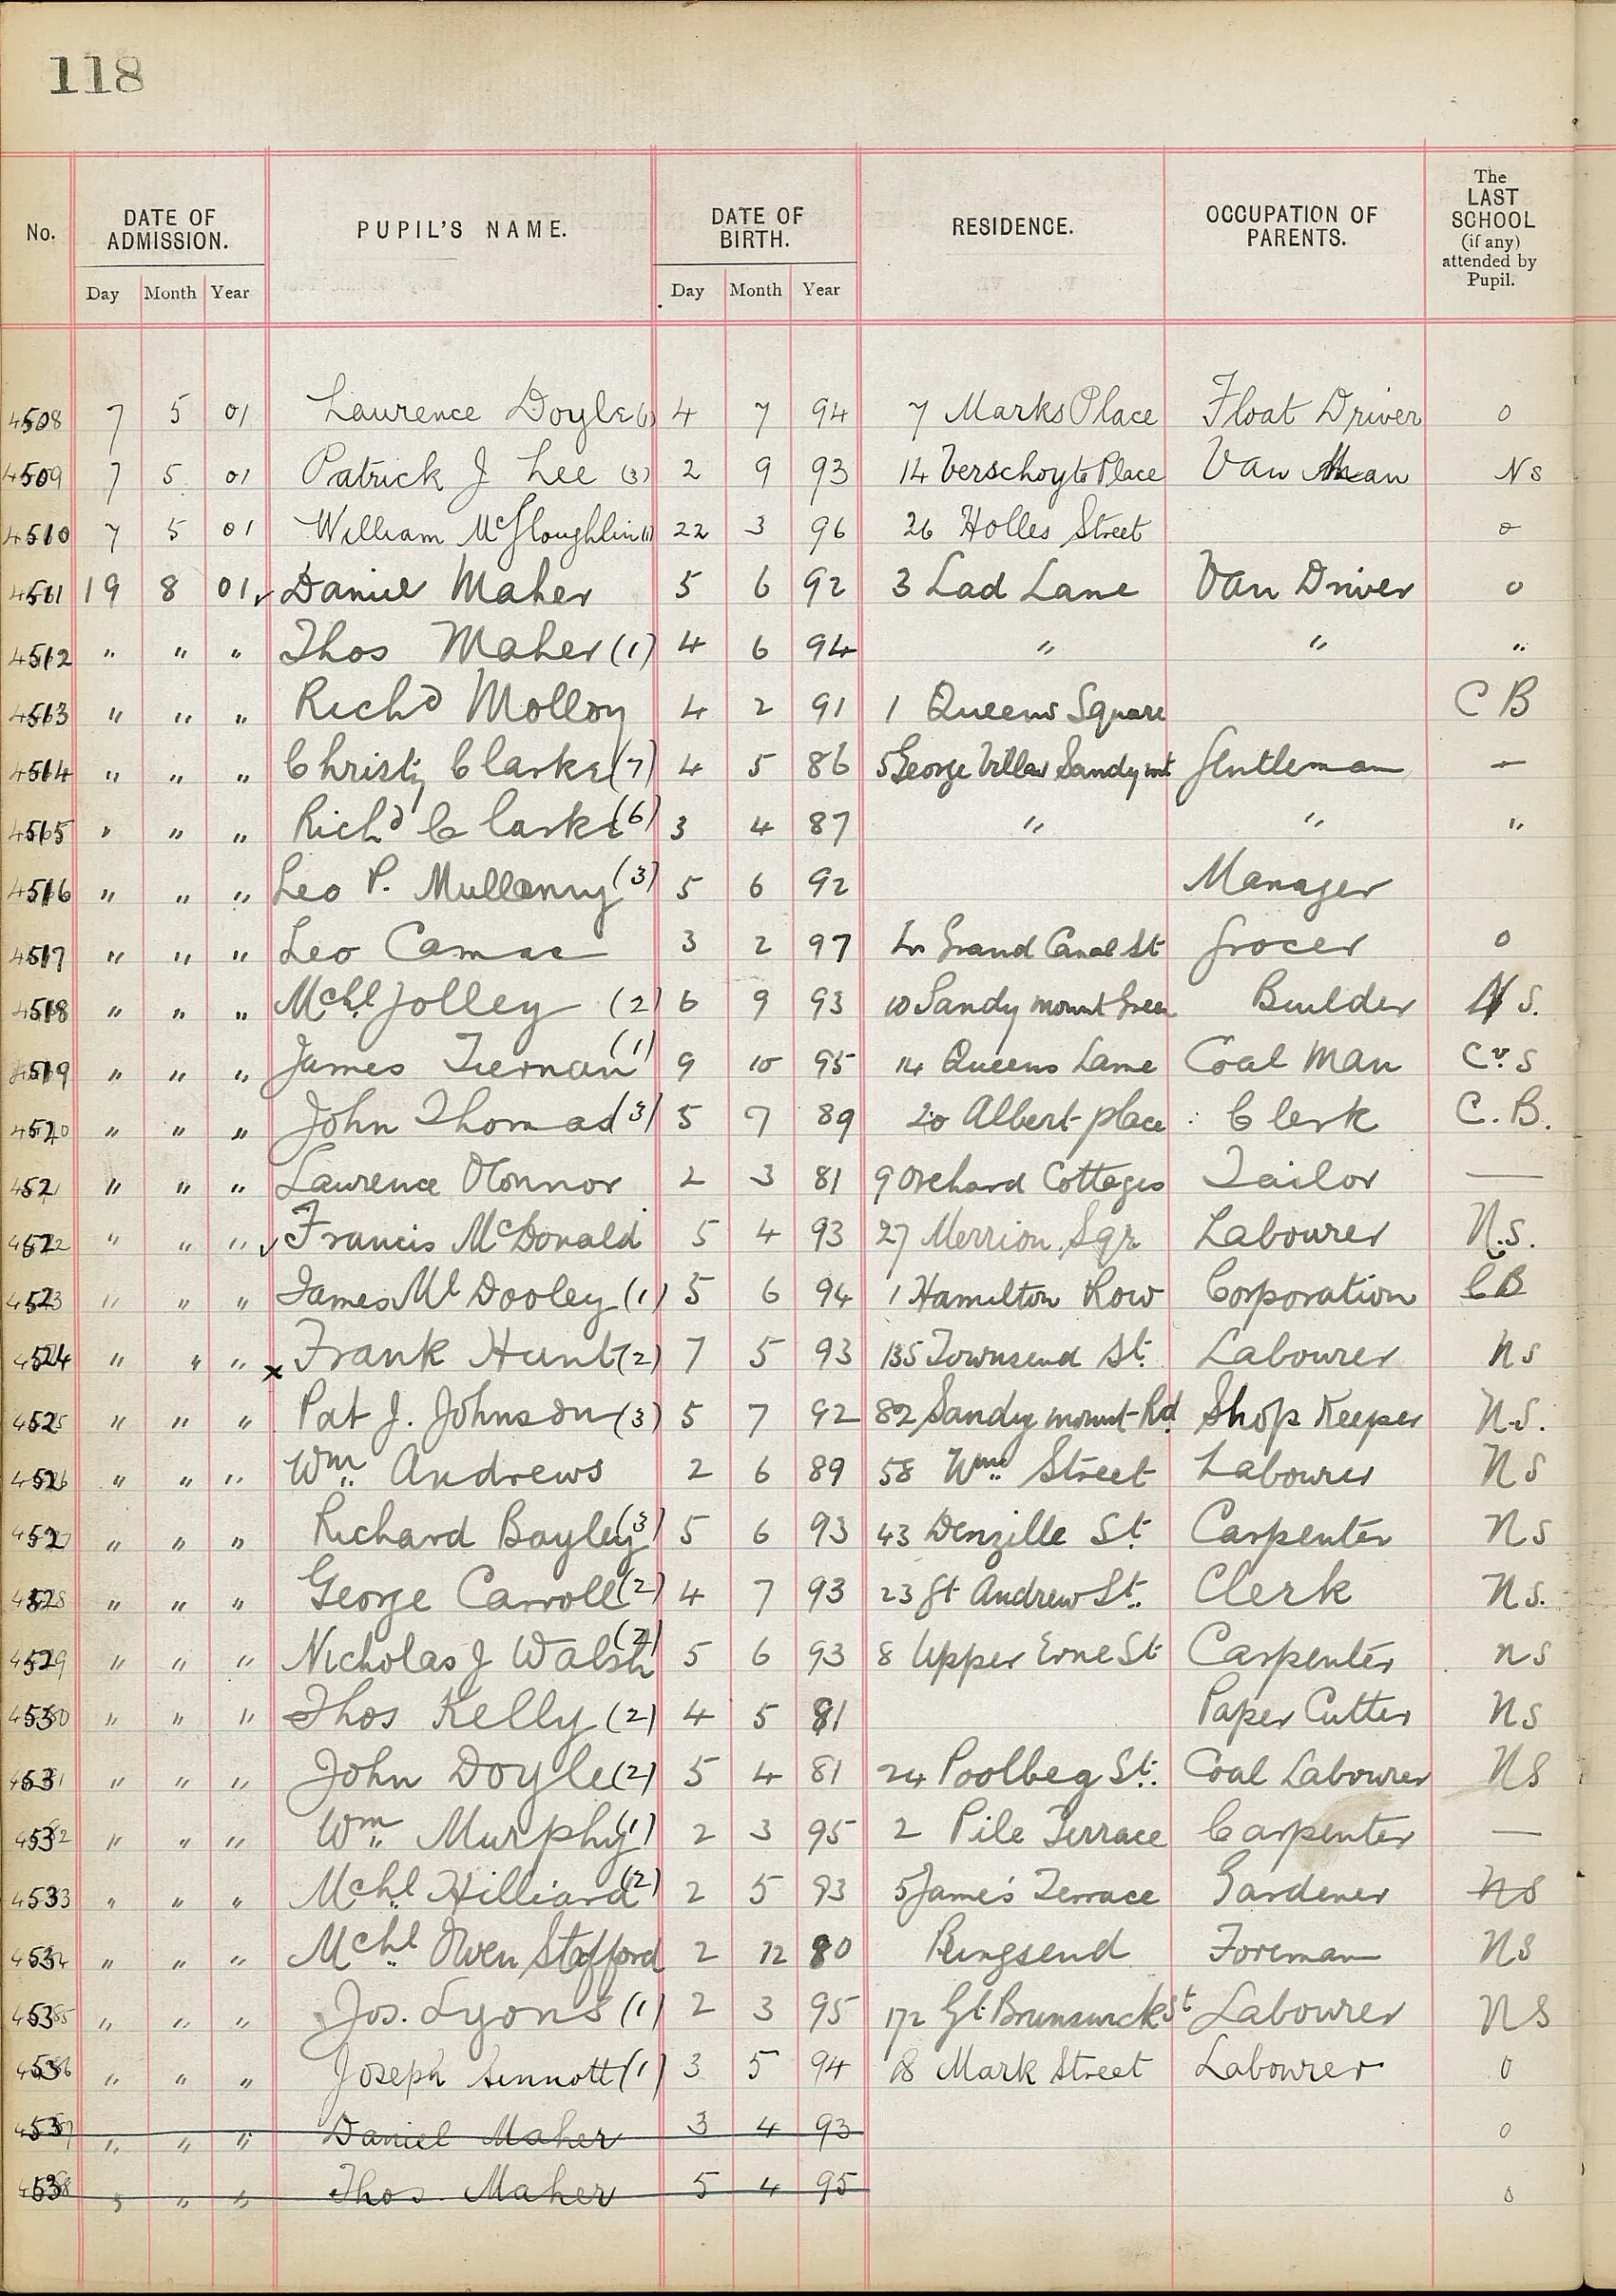 118
No. DATE OF ADMISSION. PUPIL'S NAME. DATE OF BIRTH. RESIDENCE. OCCUPATION OF PARENTS. The LAST SCHOOL (if any) attended by Pupil.
Day Month Year Day Month Year
4508 7 5 01 Laurence Doyle (1) 4 7 94 7 Marks Place Float Driver 0
4509 7 5 01 Patrick J Lee (3) 2 9 93 14 Verschoyle Place Van Man NS
4510 7 5 01 William McGloughlin (1) 22 3 96 26 Holles Street 0
4511 19 8 01 ✓ Daniel Maher 5 6 92 3 Lad Lane Van Driver 0
4512 " " " Thos Maher (1) 4 6 94 " " "
4513 " " " Richd Molloy 4 2 91 1 Queens Square C B
4514 " " " Christy Clarke (7) 4 5 86 5 George Villas Sandymt Gentleman —
4515 " " " Richd Clarke (6) 3 4 87 " " "
4516 " " " Leo P. Mullanny (3) 5 6 92 Manager
4517 " " " Leo Camac 3 2 97 Grand Canal St Grocer 0
4518 " " " Mchl Jolley (2) 6 9 93 10 Sandymount Green Builder N S.
4519 " " " James Tiernan (1) 9 10 95 14 Queens Lane Coal Man Cv S
4520 " " " John Thomas (3) 5 7 89 20 Albert place Clerk C. B.
4521 " " " Laurence OConnor 2 3 81 9 Orchard Cottages Tailor —
4522 " " " ✓ Francis McDonald 5 4 93 27 Merrion Sqr Labourer N.S.
4523 " " " James Ml Dooley (1) 5 6 94 1 Hamilton Row Corporation CB
4524 " " " x Frank Hunt (2) 7 5 93 135 Townsend St. Labourer NS
4525 " " " Pat J. Johnson (3) 5 7 92 82 Sandymount Rd Shop Keeper N.S.
4526 " " " Wm Andrews 2 6 89 58 Wm Street Labourer NS
4527 " " " Richard Bayley (3) 5 6 93 43 Denzille St. Carpenter NS
4528 " " " George Carroll (2) 4 7 93 23 St Andrew St. Clerk NS.
4529 " " " Nicholas J Walsh (2) 5 6 93 8 Upper Erne St Carpenter NS
4530 " " " Thos Kelly (2) 4 5 81 Paper Cutter NS
4531 " " " John Doyle (2) 5 4 81 24 Poolbeg St. Coal Labourer NS
4532 " " " Wm Murphy (1) 2 3 95 2 Pile Terrace Carpenter —
4533 " " " Mchl Hilliard (2) 2 5 93 5 James's Terrace Gardener NS
4534 " " " Mchl Owen Stafford 2 12 80 Ringsend Foreman NS
4535 " " " Jos. Lyons (1) 2 3 95 172 Gt Brunswick St Labourer NS
4536 " " " Joseph Sinnott (1) 3 5 94 18 Mark Street Labourer 0
4537 " " " Daniel Maher 3 4 93 0
4538 " " " Thos. Maher 5 4 95 0